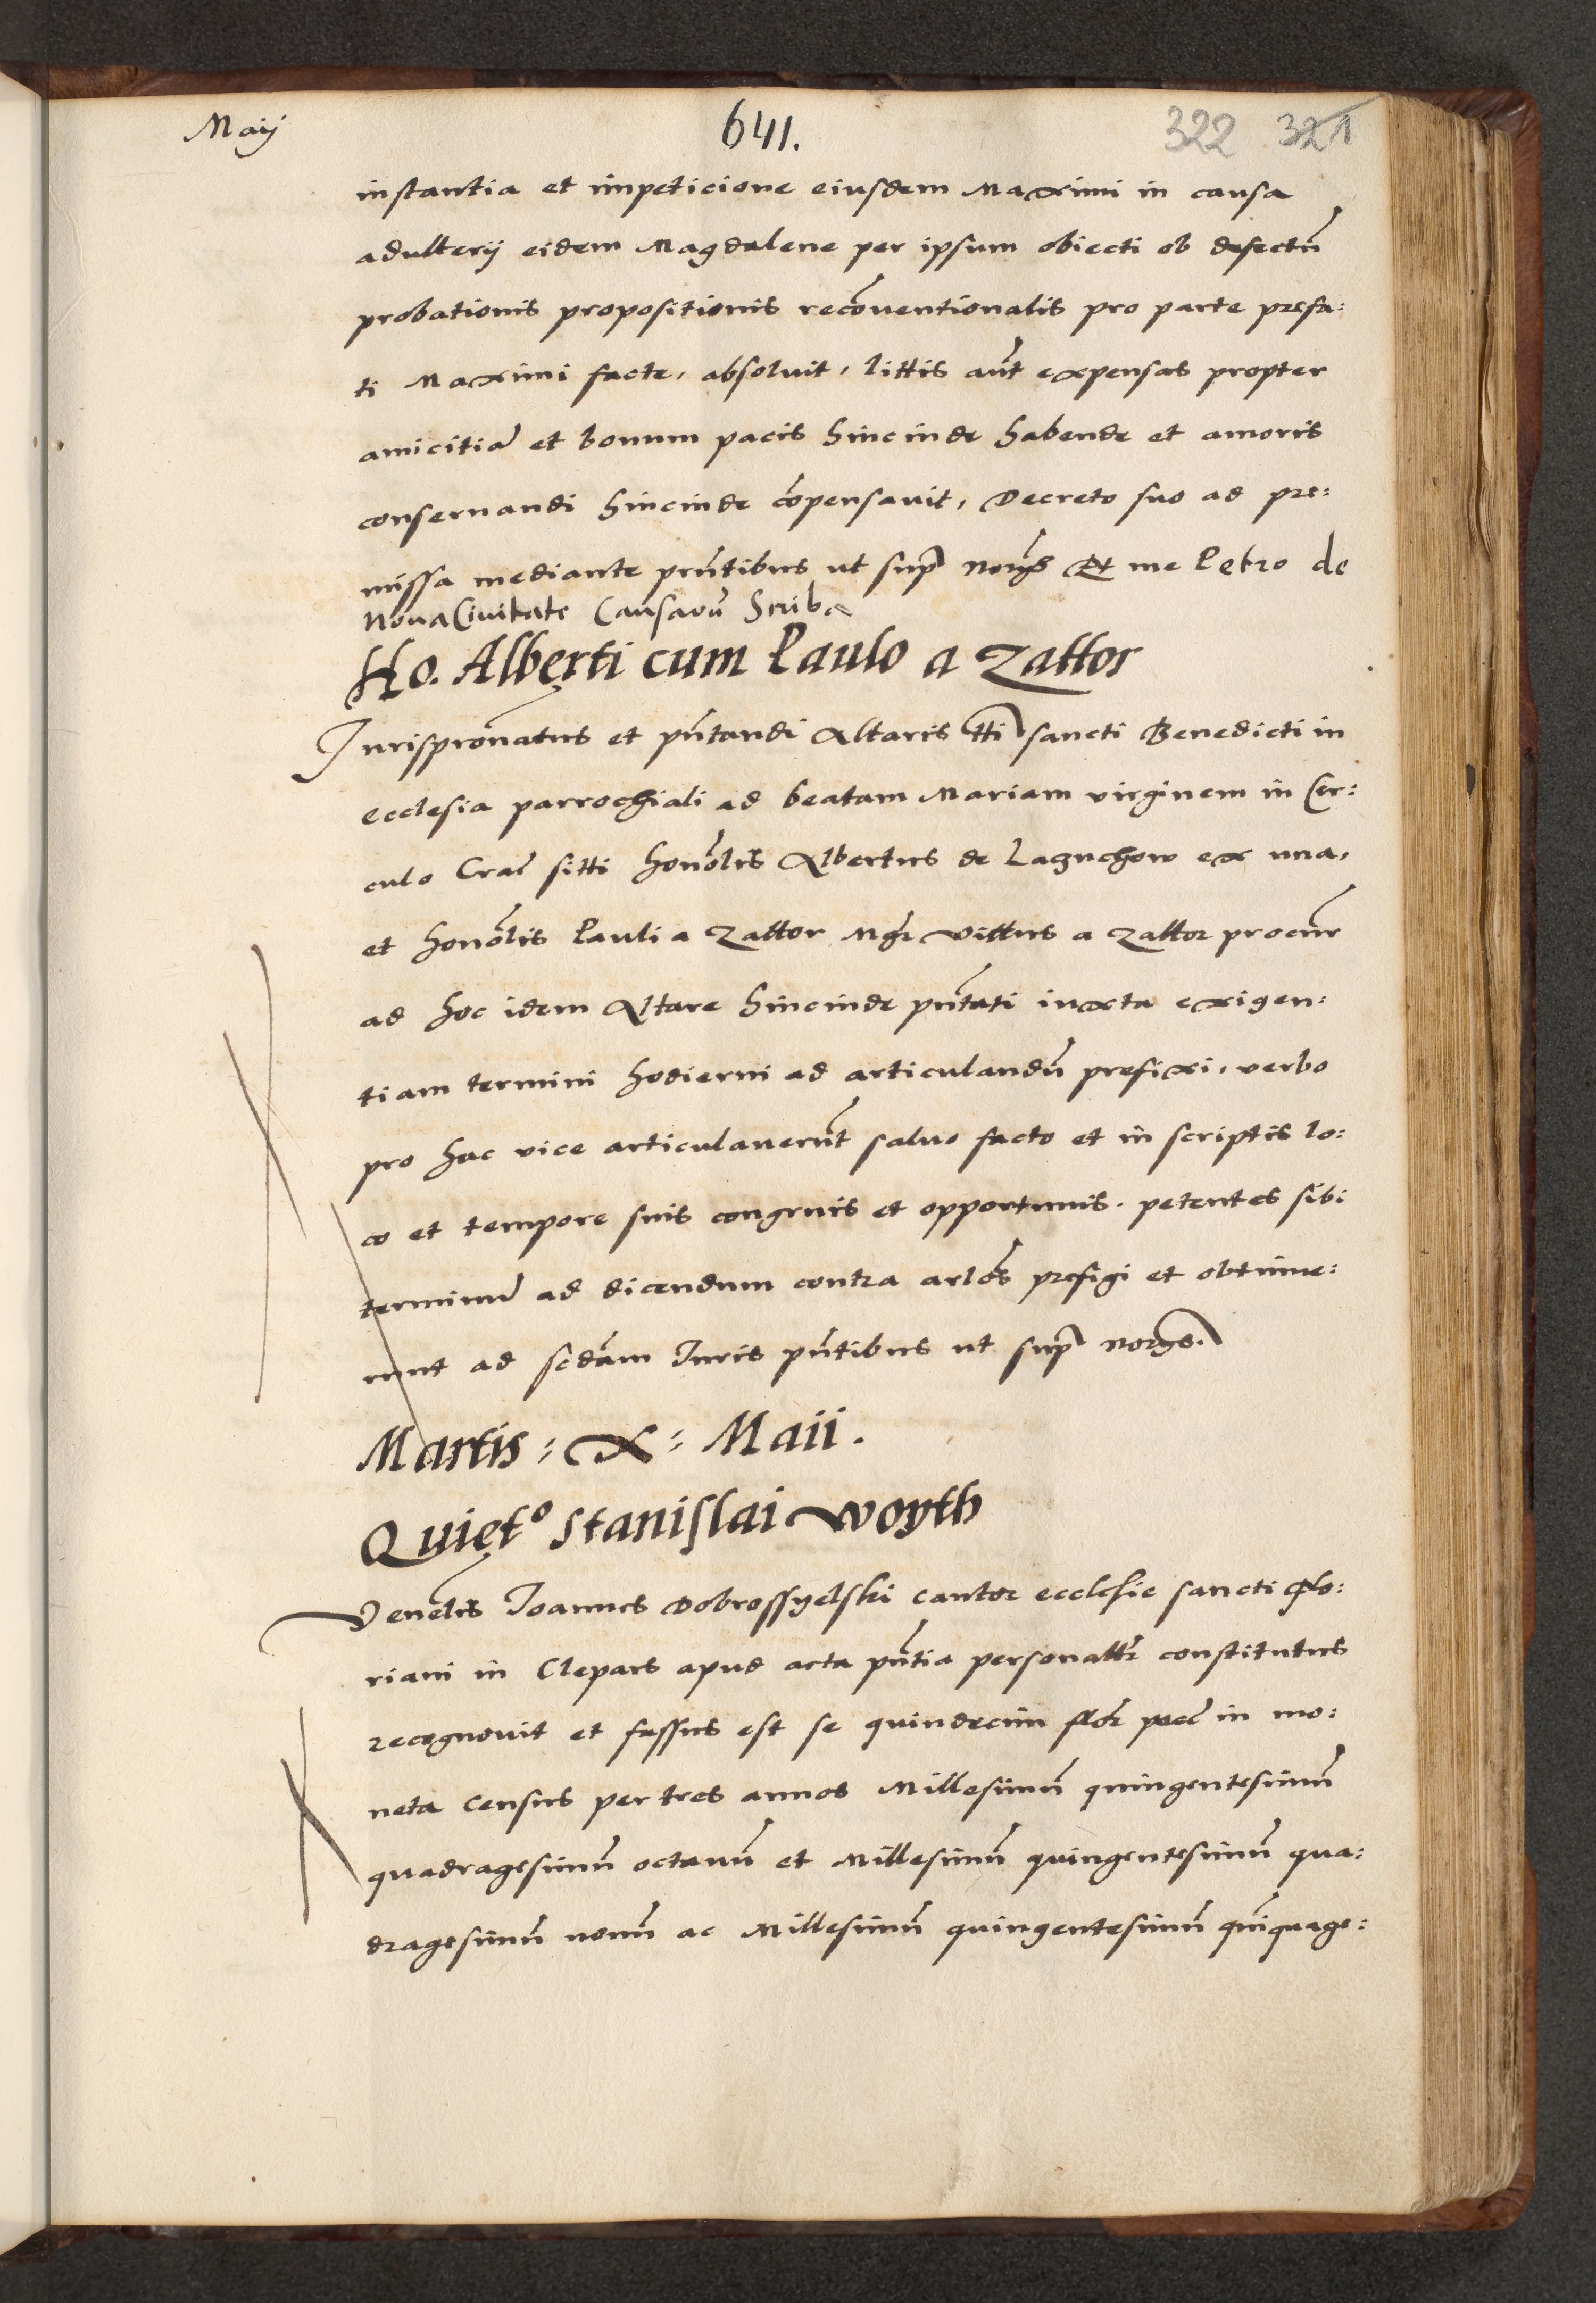 Maij
641.
322 321
instantia et impeticione eiusdem Maximi in causa
adulterij eidem Magdalene per ipsum obiecti ob defectũ
probationis propositionis recõventionalis pro parte prefa:
ti Maximi facte, absoluit, littis aũt expensas propter
amicitiã et bonum pacis hincinde habende et amoris
conservandi hincinde cõpensavit, Decreto suo ad pre:
missa mediante pñtibus ut sup Et me Petro de
Nova Civitate Causarũ Scriba
Ho. Alberti cum Paulo a Zattor
Jurispronatus et pñtandi Altaris tti sancti Benedicti in
ecclesia parrochiali ad beatam Mariam virginem in Cir:
culo Crac sitti honõlis Albertus de Lagnchow ex una,
et honõlis Pauli a Zattor Mgr Vittus a Zattor procur
ad hoc idem Altare hincinde pñtati iuxta exigen:
tiam termini hodierni ad articulandũ prefixi, verbo
pro hac vice articulaverũt salvo facto et in scriptis lo:
co et tempore suis congruis et opportunis. petentes sibi
terminũ ad dicendum contra arlos prefigi et obtinue:
runt ad scdam Juris pñtibus ut sup
Martis : X : Maii .
Quiet° Stanislai Woyth
Venelis Joannes Dobrossyelski Cantor ecclesie sancti Flo:
riani in Clepars apud acta pñtia personaltr constitutus
recognovit et fassus est se quindecim flor pecc in mo:
neta census per tres annos Millesimũ quingentesimũ
quadragesimũ octavũ et Millesimũ quingentesimũ qua:
dragesimũ nonũ ac Millesimũ quingentesimũ qũiquage: